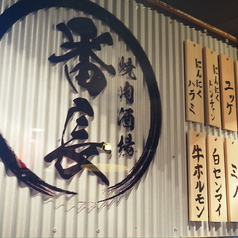 番長
焼肉酒場
ユッケ
にんにくレンチン
にんにくハラミ
ミノ
白センマイ
牛ホルモン